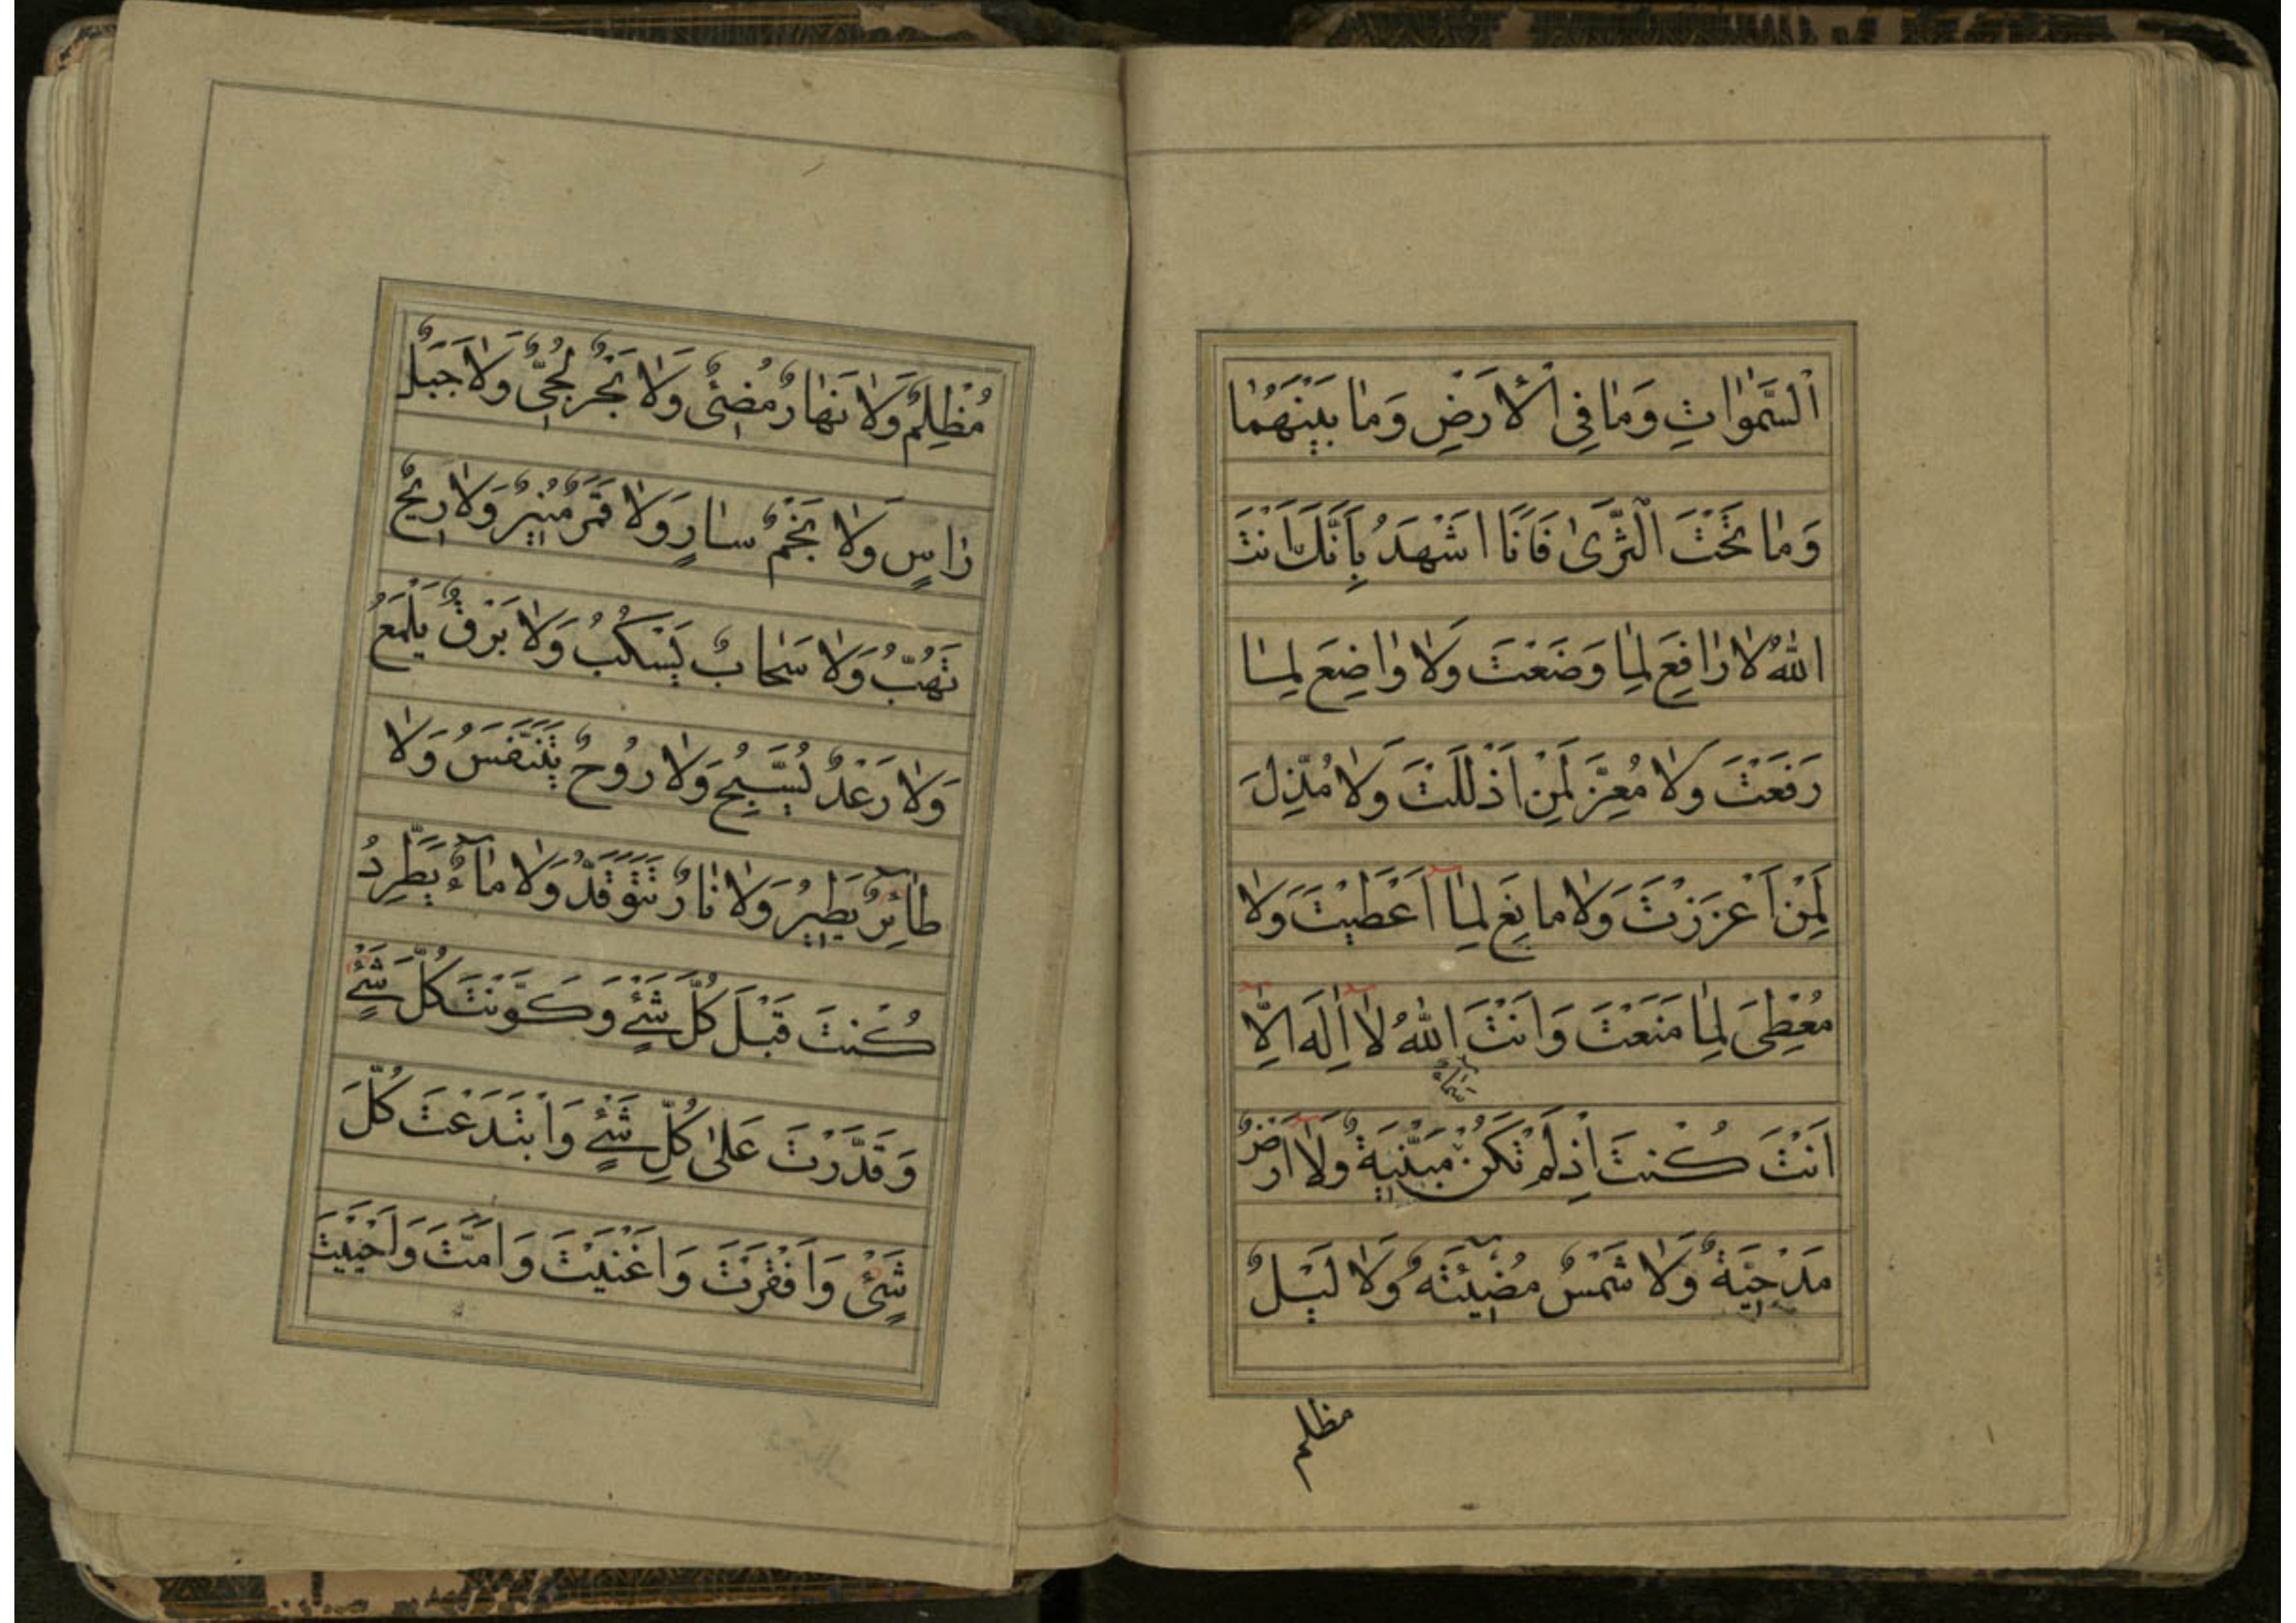 اَلسَّمٰوَاتِ وَمَا فِي الْأَرَضِ وَمَا بَيْنَهُمَا
وَمَا تَحْتَ الْثَّرىٰ فَاَنَا اَشْهَدُ بِاَنَّكَ اَنْتَ
اللهُ لَا رَافِعَ لِمَا وَضَعْتَ وَلَا وَاضِعَ لِمَا
رَفَعْتَ وَلَا مُعِزَّ لِمَنْ اَذْلَلْتَ وَلَا مُذِّلَ
لِمَنْ اَعْزَزْتَ وَلَا مَانِعَ لِمَا اَعْطَيْتَ وَلَا
مُعْطِيَ لِمَا مَنَعْتَ وَاَنْتَ اللهُ لَا اِلَهَ اِلَّا
سماء
اَنْتَ كُنْتَ اِذْ لَمْ تَكُنْ مَبْنِّيَةٌ وَلَا اَرْضٌ
مَدْحِيَّةٌ وَلَا شَمْسٌ مُضِيْئَتهٌ وَلَا لَيْلٌ
مظلم
مُظْلِمٌ وَلَا نَهَارٌ مُضِئٌ وَلَا بَحْرٌ لُجِّىٌّ وَلَا جَبَلٌ
رَاسٍ وَلَا نَجْمٌ سَارٍ وَلَا قَمَرٌ مُنِيْرٌ وَلَا رِيْحٌ
تَهُبُّ وَلَا سَحَابٌ يَسْكُبُ وَلَا بَرْقٌ يَلْمَعُ
وَلَا رَعْدٌ يُسَبِّحُ وَلَا رُوْحٌ يَتَنَفَّسُ وَلَا
طَائِرٌ يَطِيْرُ وَلَا نَارٌ تَتَوَقَّدُ وَلَا مَآءٌ يَطَّرِدُ
كُنْتَ قَبْلَ كُلَّ شَيْءٍ وَكَوَّنْتَ كُلَّ شَيْءٍ
وَقَدَّرْتَ عَلىٰ كُلِّ شَيْءٍ وَابْتَدَعْتَ كُلَّ
شَيْءٍ وَاَفْقَرْتَ وَاَغْنَيْتَ وَاَمَتَّ وَاَحْيَيْتَ